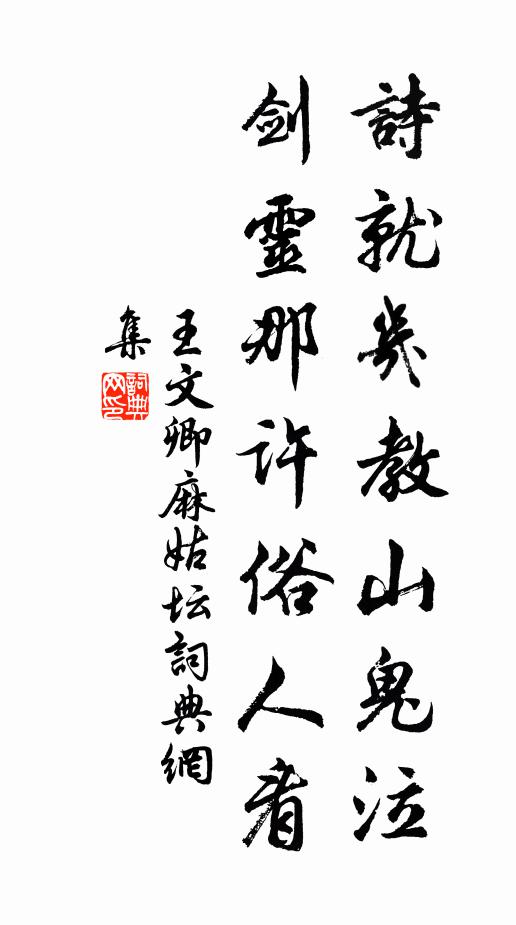 詩就幾教山鬼泣
劍靈那許俗人看
王文卿麻姑坛詞典網
集
詞典网印